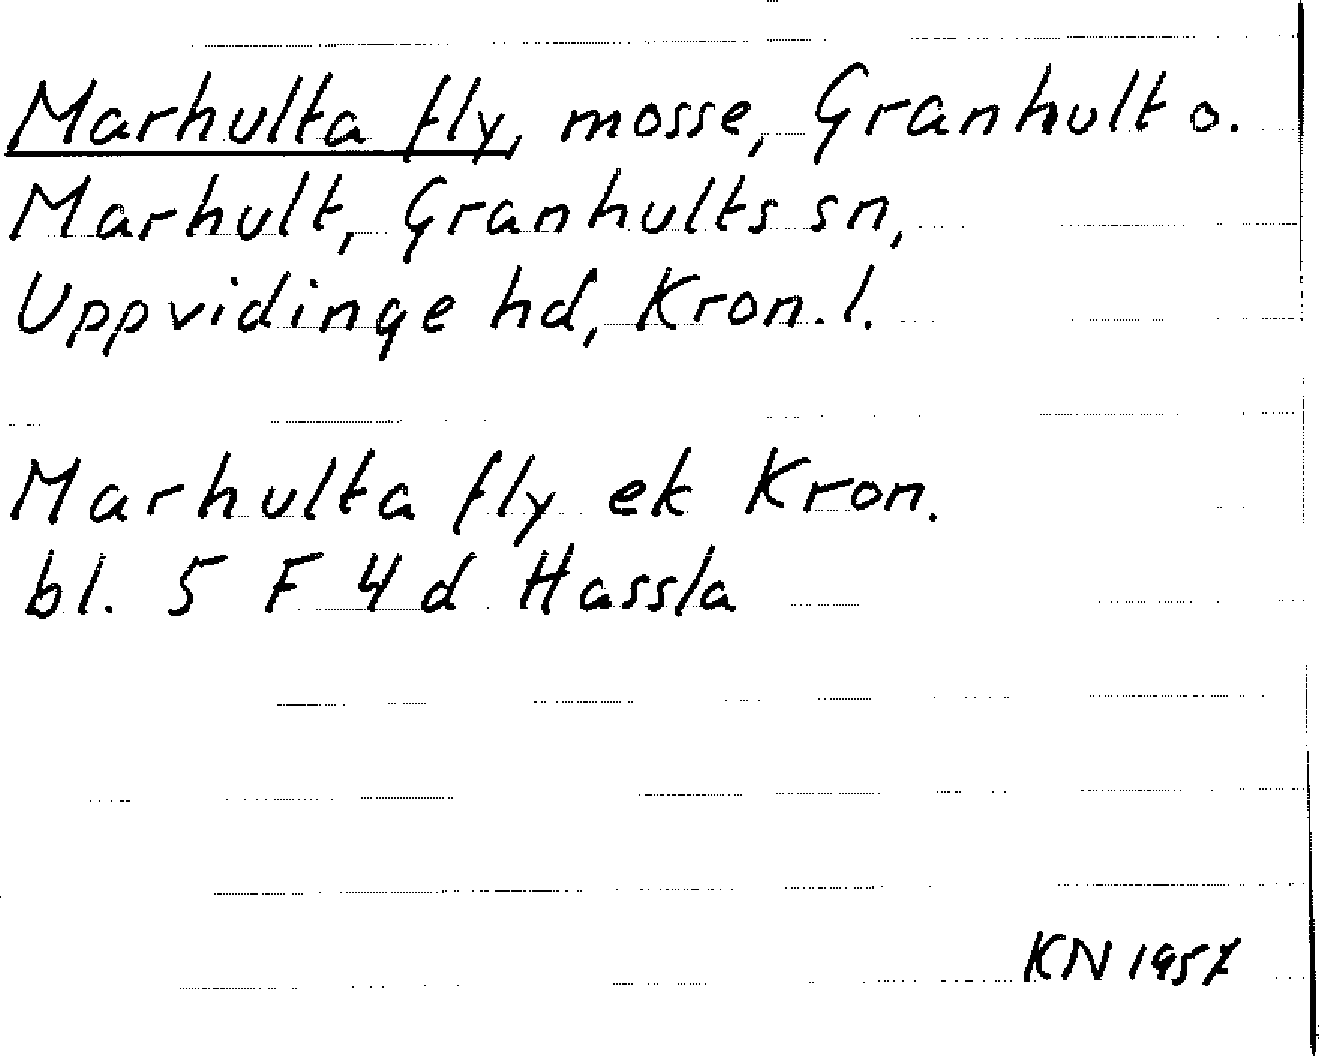 Marhulta fly, mosse, Granhult o.
Marhult, Granhults sn,
Uppvidinge hd, Kron. l.
Marhulta fly ek Kron.
bl. 5 F 4 d Hassla
KN 1957